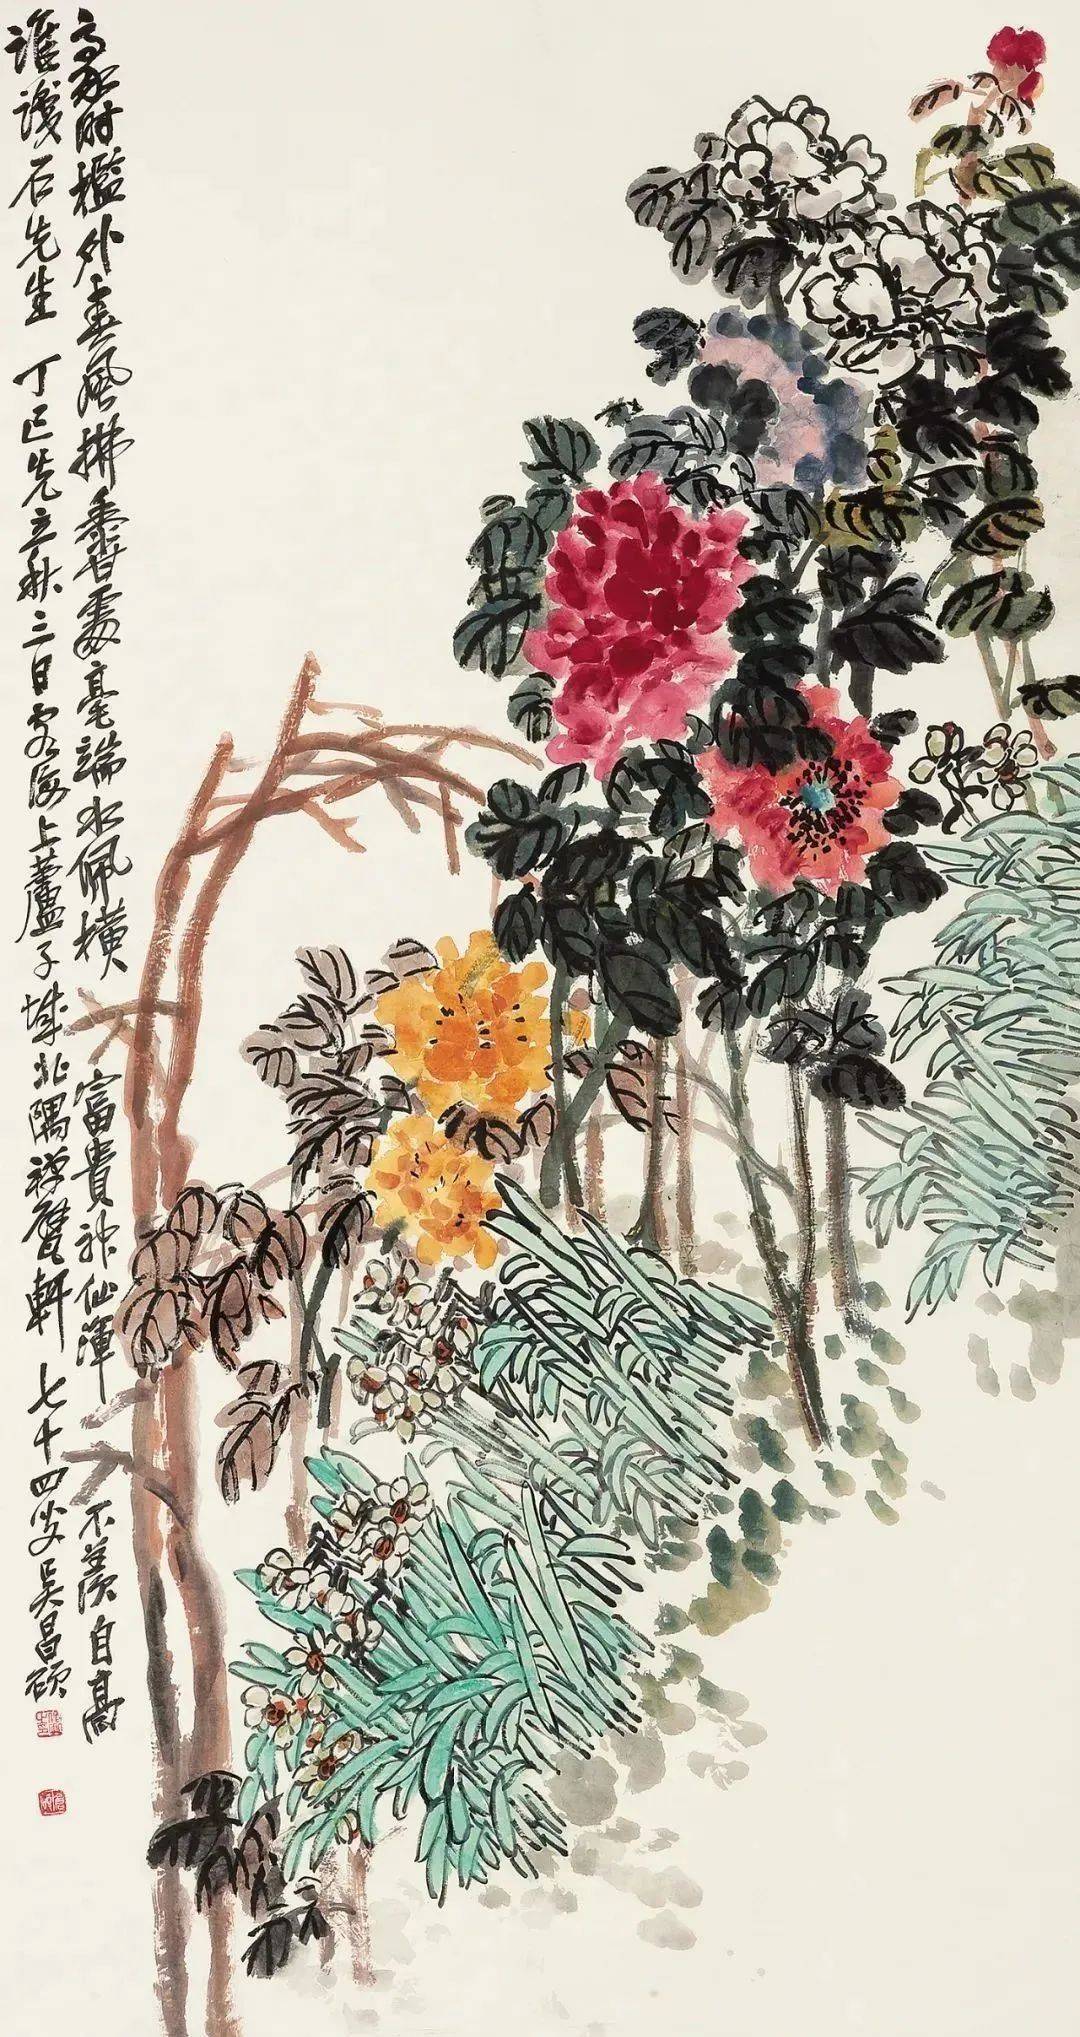 紅時檻外春風拂香處毫端水佩橫富貴神仙渾不羨自高
誰識石先生 丁巳先立秋三日客海上蘆子城北隅禪甓軒 七十四叟吳昌碩